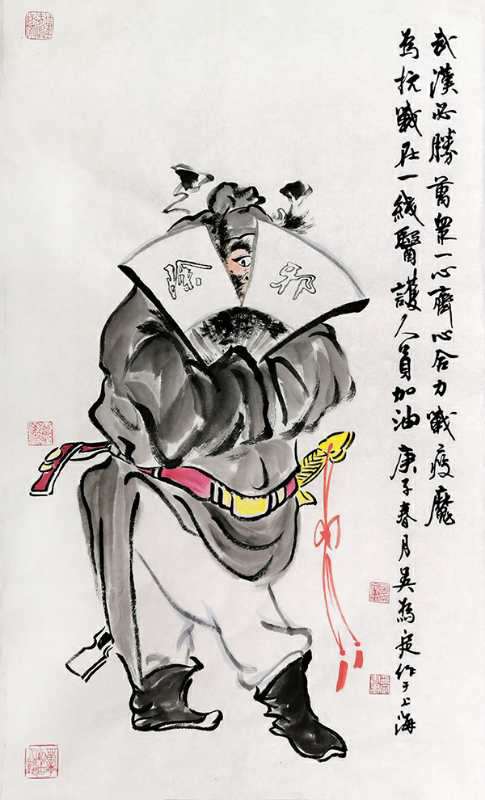 武漢必勝萬衆一心齊心合力戰疫魔
為抗戰在一綫醫護人員加油 庚子春月吳為作于上海
除邪